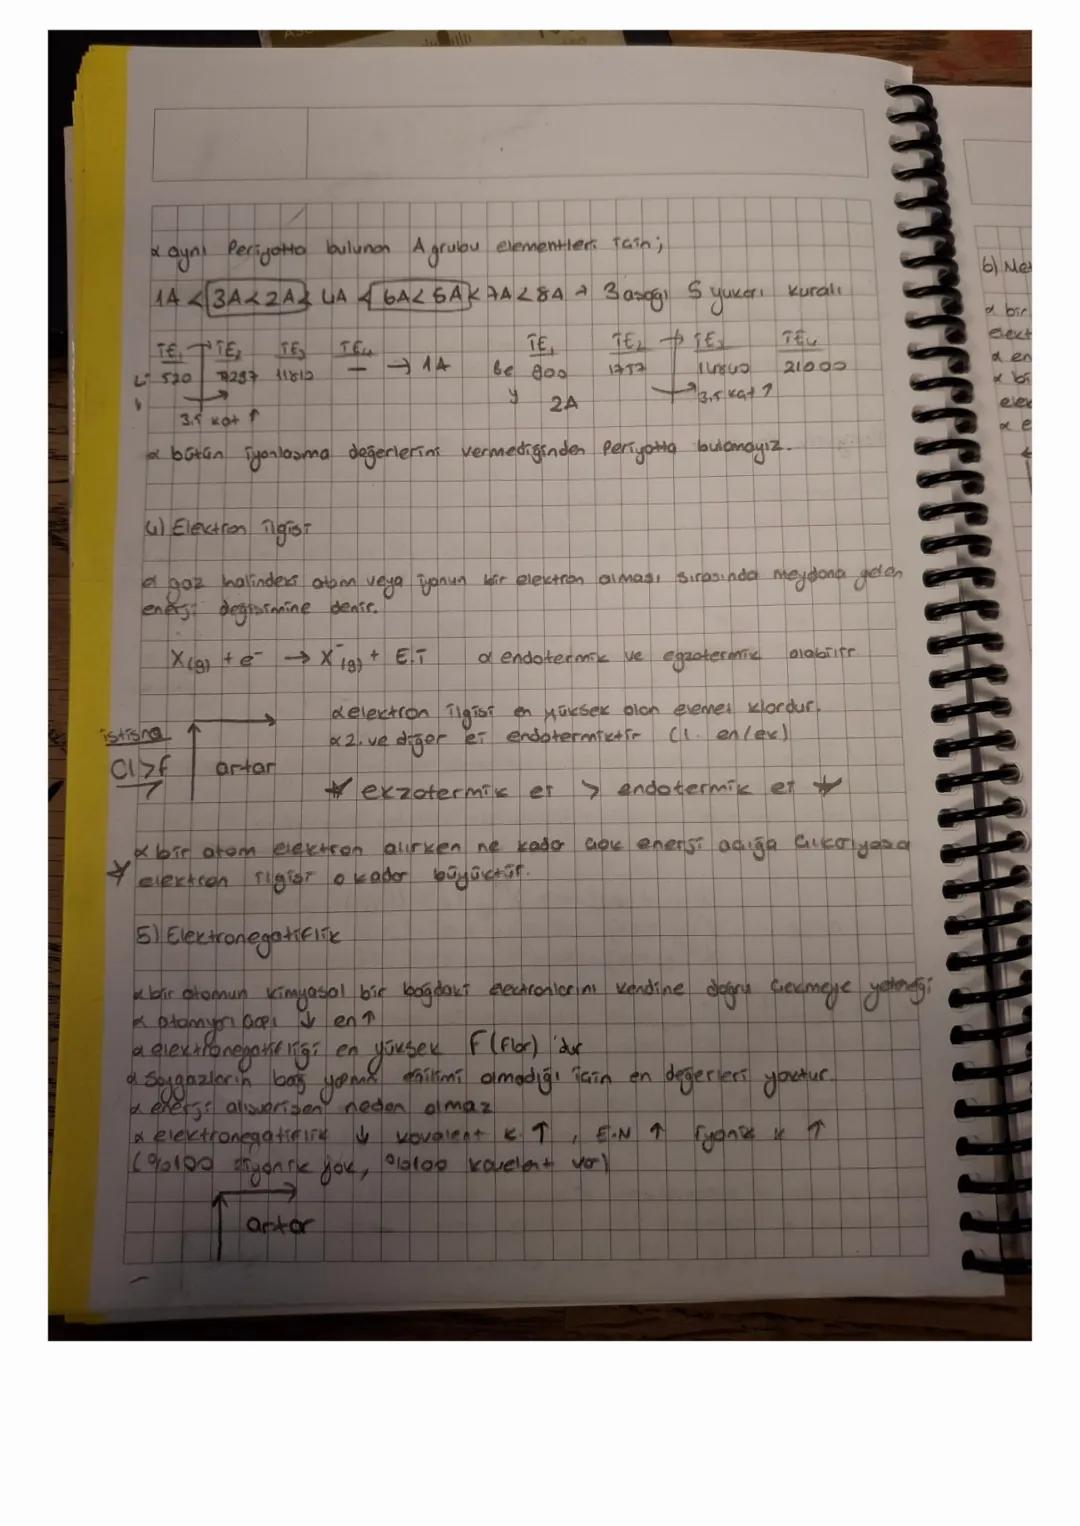 α aynı Periyotta bulunan A grubu elementleri için;
1A < 3A < 2A < 4A < 6A < 5A < 7A < 8A → 3 aşağı 5 yukarı kuralı
İE₁ → İE₂ İE₃ İE₄ → 1A
Li 520 7297 11810 —
3,5 kat ↑
İE₁ İE₂ → İE₃ İE₄
Be 900 1757 14840 21000
2A
3,5 kat ↑
α bütün iyonlaşma değerlerini vermediğinden Periyotta bulamayız.
4) Elektron ilgisi
α gaz halindeki atom veya iyonun bir elektron alması sırasında meydana gelen
enerji değişimine denir.
X(g) + e⁻ → X⁻(g) + E.İ α endotermik ve egzotermik olabilir
α elektron ilgisi en yüksek olan element klordur.
α 2. ve diğer ei endotermiktir (1. en/ek)
istisna
Cl > F
artar
★ ekzotermik ei > endotermik ei ★
α bir atom elektron alırken ne kadar çok enerji açığa çıkarıyorsa
elektron ilgisi o kadar büyüktür.
5) Elektronegatiflik
α bir atomun kimyasal bir bağdaki electronlarını kendine doğru çekmeye yeteneği
α atomyarıçapı ↓ en ↑
α elektronegatifliği en yüksek F (Flor) 'dur
α Soygazların bağ yapma eğilimi olmadığı için en değerleri yoktur.
α enerji alışverişen neden olmaz
α elektronegatiflik ↓ kovalent k ↑, E.N ↑ iyonik k ↑
(%100 iyonik yok, %100 kovelent var)
artar
6)
α bir
elekt
α en
α bi
elek
α e